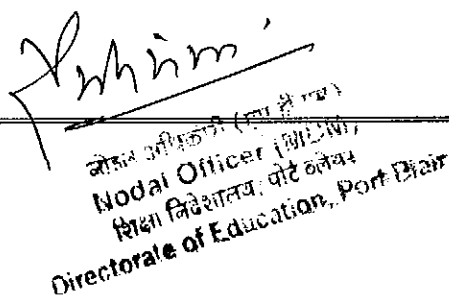 नोडल अधिकारी (एम डी एम)
Nodal Officer (MDM),
शिक्षा निदेशालय, पोर्ट ब्लेयर
Directorate of Education, Port Blair